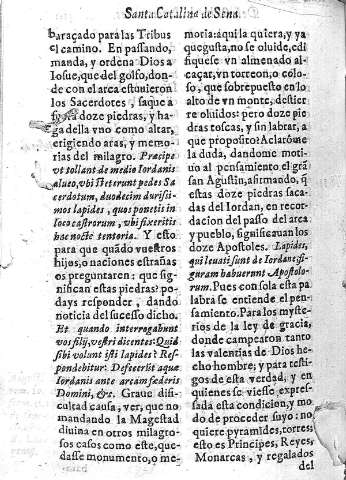 Santa Catalina de Sena.
baraçado para las Tribus
el camino. En passando,
manda, y ordena Dios a
Iosue, que del golfo, don-
de con el arca estuuieron
los Sacerdotes, saque a
fuera doze piedras, y ha-
ga della vno como altar,
erigiendo aras, y memo-
rias del milagro. Præcipe
vt tollant de medio Iordanis
alueo, vbi steterunt pedes Sa-
cerdotum, duodecim durissi-
mos lapides, quos ponetis in
loco castrorum, vbi fixeritis
hac nocte tentoria. Y esto
para que quãdo vuestros
hijos, o naciones estrañas
os preguntaren: que sig-
nifican estas piedras? po-
days responder, dando
noticia del sucesso dicho.
Et quando interrogabunt
vos filij, vestri dicentes: Quid
sibi volunt isti lapides? Res-
pondebitur: Defecerũt aquæ
Iordanis ante arcam fœderis
Domini, &c. Graue difi-
cultad causa, ver, que no
mandando la Magestad
diuina en otros milagro-
sos casos como este, que-
dasse monumento, o me-
moria: aqui la quiera, y ya
que gusta, no se oluide, edi-
fiquese vn almenado al-
caçar, vn torreon, o colo-
so, que sobrepuesto en lo
alto de vn monte, destier-
re oluidos: pero doze pie-
dras toscas, y sin labrar, a
que proposito? Aclarôme
la duda, dandome moti-
uo al pensamiento el grã
san Agustin, afirmando, q
estas doze piedras saca-
das del Iordan, en recor-
dacion del passo del arca
y pueblo, significauan los
doze Apostoles. Lapides,
qui leuati sunt de Iordane fi-
guram habuerunt Apostolo-
rum. Pues con sola esta pa
labra se entiende el pen-
samiento. Para los myste-
rios de la ley de gracia,
donde campearon tanto
las valentias de Dios he-
cho hombre; y para testi-
gos de esta verdad, y en
quienes se viesse expres-
sada esta condicion, y mo
do de proceder suyo: no
quiere pyramides, torres;
esto es Principes, Reyes,
Monarcas, y regalados
del